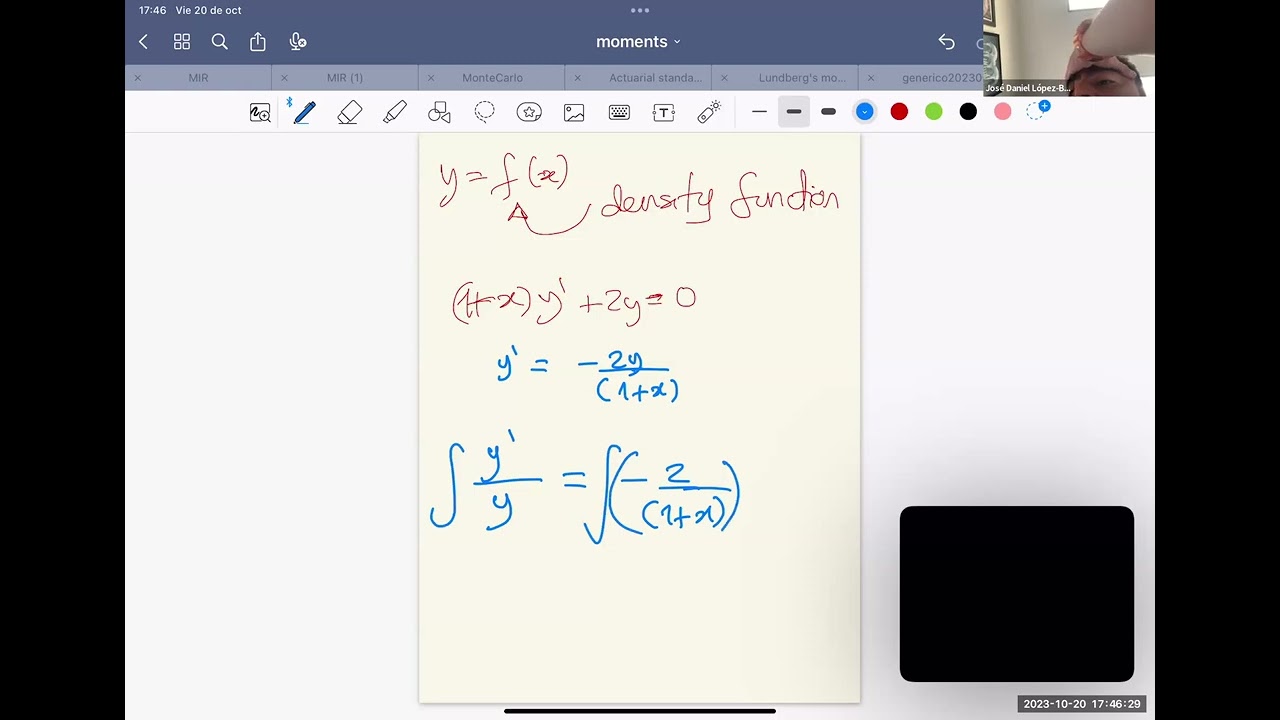 17:46 Vie 20 de oct
moments
MIR
MIR (1)
MonteCarlo
Actuarial standa...
Lundberg's mo...
generico20230
José Daniel López-B...
y = f(x)
density function
(1+x)y' + 2y = 0
y' = - 2y / (1+x)
∫ y'/y = ∫(- 2/(1+x))
2023-10-20 17:46:29